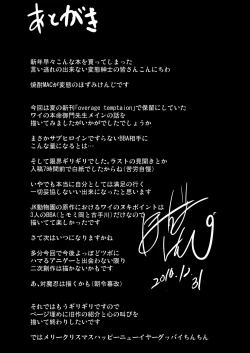 あとがき
新年早々こんな本を買ってしまった
言い逃れの出来ない変態紳士の皆さんこんにちわ
焼酎MACが変態のほずみけんじです
今回は夏の新刊「overage temptaion」で保留にしていた
ワイの本命御門先生メインの話を
描いてみましたがいかがでしたでしょうか
まさかサブヒロインですらないBBA相手に
こんな量になるとは…
そして限界ギリギリでした。ラストの見開きとか
入稿7時間前で白紙でしたからね(苦労自慢)
いやでも本当に自分としては満足の行く
一切妥協しない出来になったと思います
JK動物園の原作におけるワイのヌキポイントは
3人のBBA(とモミ岡と古手川)だけなので
描いてて実に楽しかったです
さて次はいつになりますかね
多分今回で今後よっぽどツボに
ハマるアニゲーと出会わない限り
二次創作は描かないかもです
あ、対魔忍は描くかも(朝令暮改)
それではもうギリギリですので
ページ埋めに旧作の紹介と心の叫びを
描いて終わりたいと思います
ではメリークリスマスハッピーニューイヤーグッバイちんちん
2016.12.31